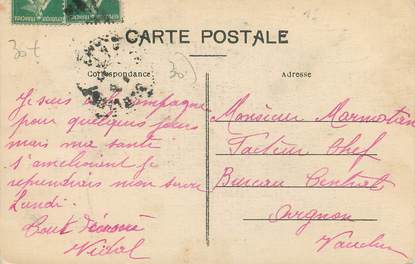 CARTE POSTALE
Correspondance
Adresse
30
Je suis à la campagne
pour quelques jours
mais ma santé
s'améliorent je
reprendrais mon
Lundi.
Tout dévoué
Vidal
Monsieur
Facteur Chef
Bureau Central
Avignon
Vaucluse